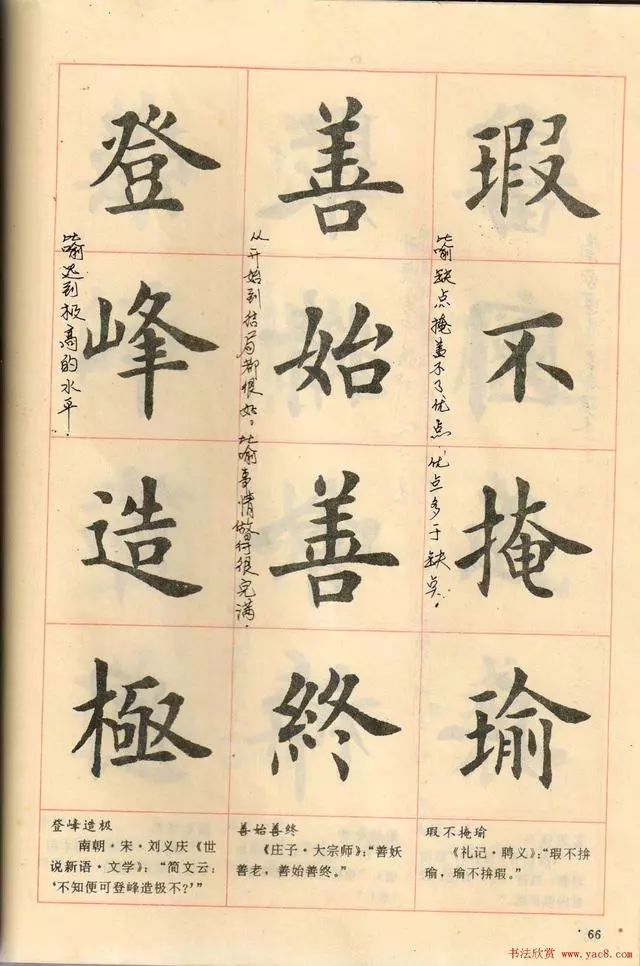 瑕不掩瑜
比喻缺点掩盖不了优点，优点多于缺点。
善始善終
从开始到结局都很好。比喻事情做得很完满。
登峰造極
比喻达到极高的水平。
瑕不掩瑜
《礼记·聘义》：“瑕不揜
瑜，瑜不揜瑕。”
善始善终
《庄子·大宗师》：“善妖
善老，善始善终。”
登峰造极
南朝·宋·刘义庆《世
说新语·文学》：“简文云：
‘不知便可登峰造极不？’”
66
书法欣赏
www.yac8.com